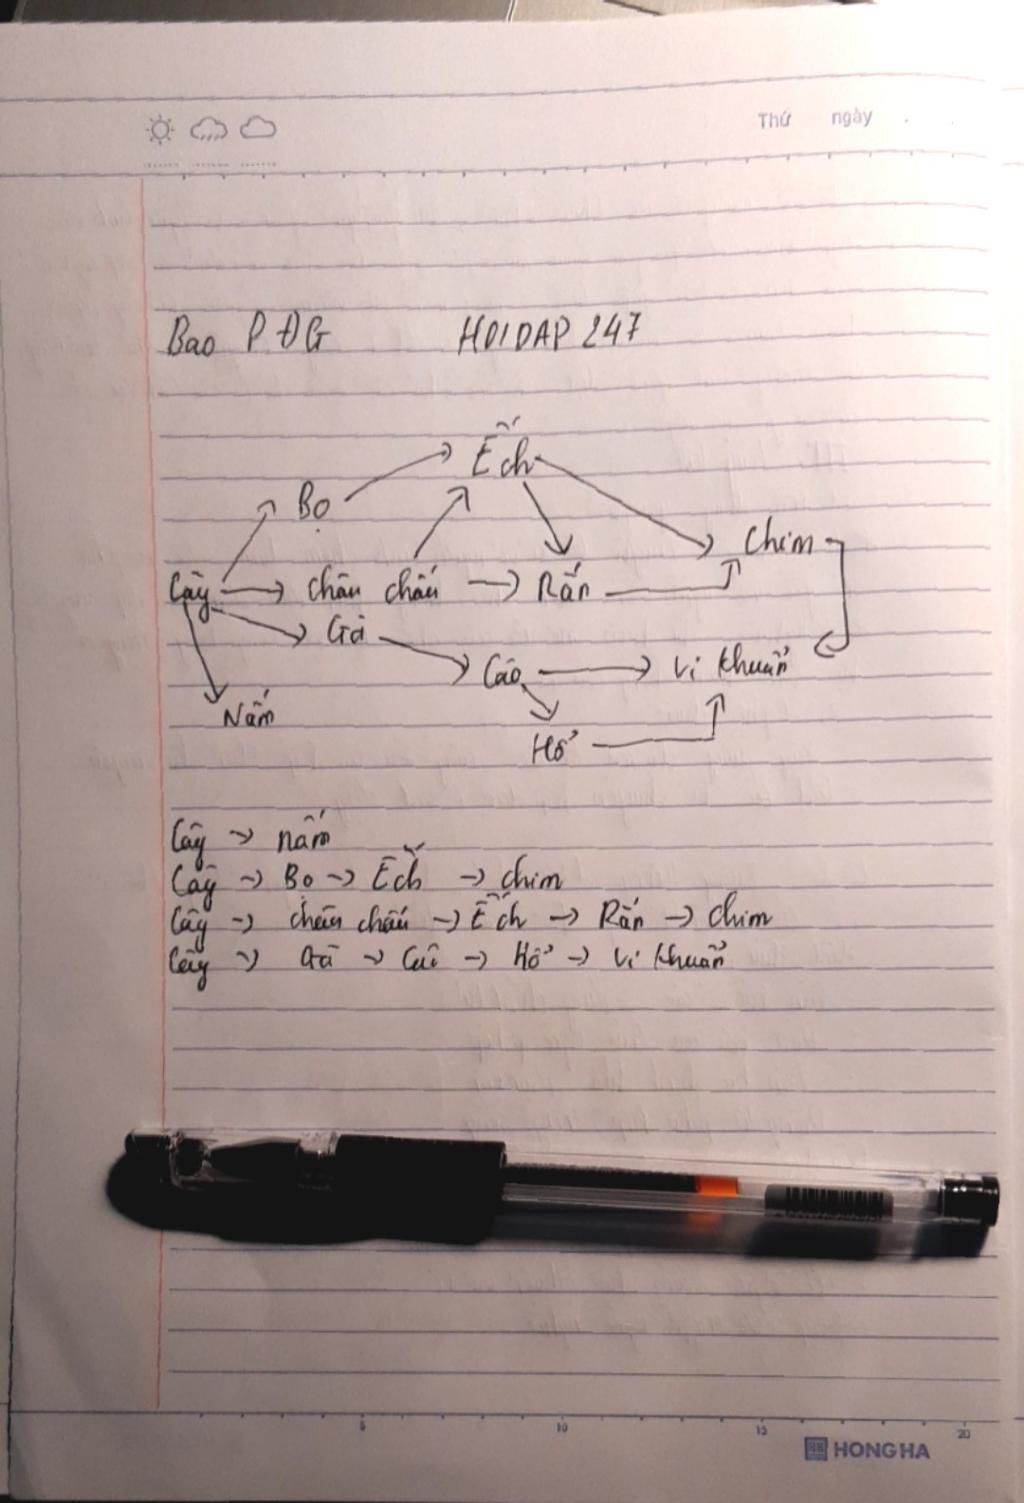 Thứ ngày
Bao P ĐG HOIDAP 247
Ếch
Bọ
Chim
Cây Châu chấu Rắn
Gà
Cáo Vi khuẩn
Nấm
Hổ
Cây -> nấm
Cây -> Bọ -> Ếch -> chim
Cây -> châu chấu -> Ếch -> Rắn -> Chim
Cây -> Gà -> Cáo -> Hổ -> Vi khuẩn
5 10 15 20
HONG HA